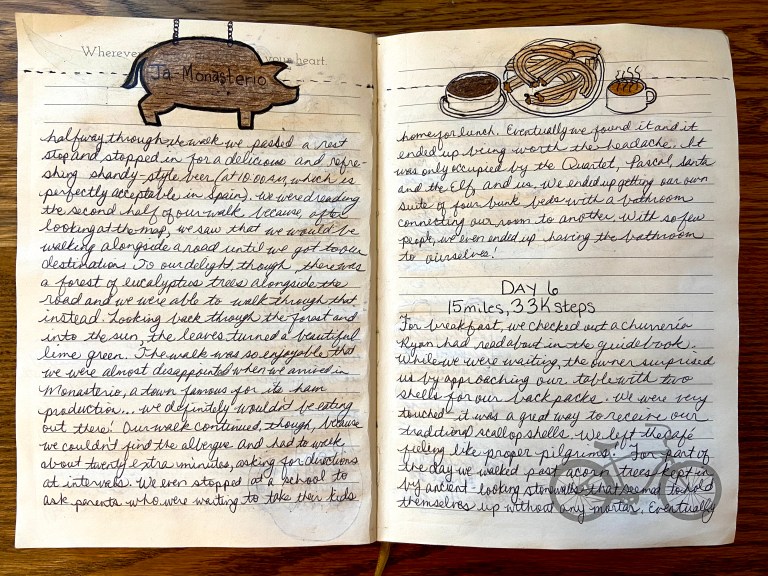 Wherever
your heart.
Ja-Monasterio
halfway through the walk we passed a rest
stop and stopped in for a delicious and refre-
shing shandy-style beer (at 10:00 AM, which is
perfectly acceptable in Spain). We were dreading
the second half of our walk because, after
looking at the map, we saw that we would be
walking alongside a road until we got to our
destination. To our delight, though, there was
a forest of eucalyptus trees alongside the
road and we were able to walk through that
instead. Looking back through the forest and
into the sun, the leaves turned a beautiful
lime green. The walk was so enjoyable that
we were almost disappointed when we arrived in
Monasterio, a town famous for its ham
production... we definitely wouldn't be eating
out there! Our walk continued, though, because
we couldn't find the albergue and had to walk
about twenty extra minutes, asking for directions
at intervals. We even stopped at a school to
ask parents who were waiting to take their kids
home for lunch. Eventually we found it and it
ended up being worth the headache. It
was only occupied by the Quartet, Pascal, Santa
and the Elf, and us. We ended up getting our own
suite of four bunk beds with a bathroom
connecting our room to another. With so few
people, we even ended up having the bathroom
to ourselves!
DAY 6
15 miles, 33K steps
For breakfast, we checked out a churrería
Ryan had read about in the guidebook.
While we were waiting, the owner surprised
us by approaching our table with two
shells for our backpacks. We were very
touched it was a great way to receive our
traditional scallop shells. We left the café
feeling like proper pilgrims! For part of
the day we walked past acorn trees kept in
by ancient-looking stone walls that seemed to hold
themselves up without any mortar. Eventually